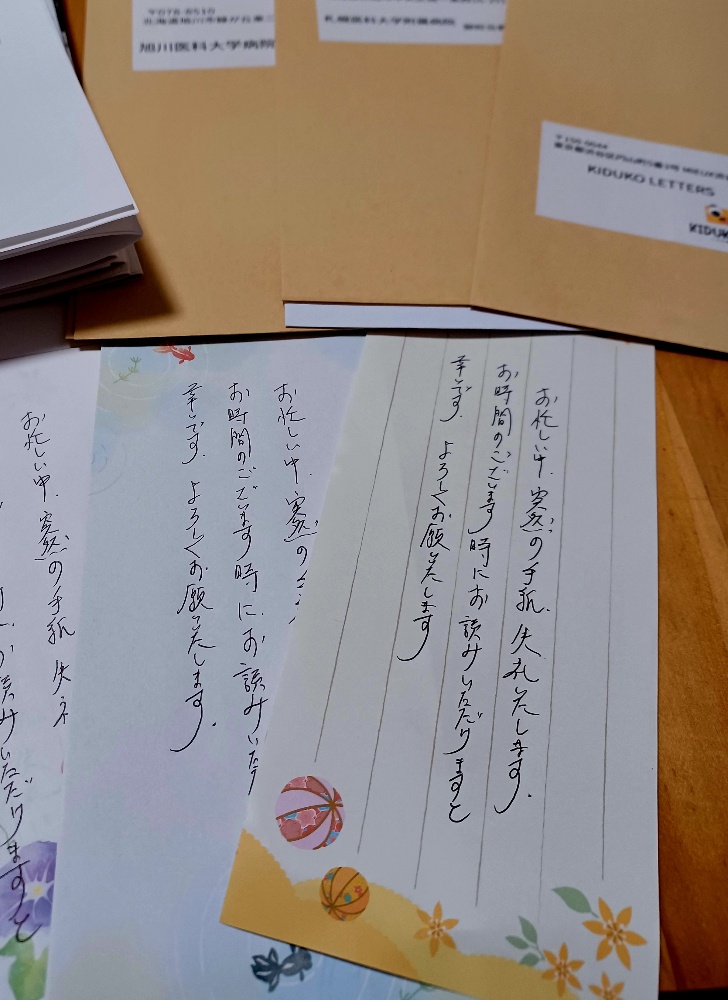 〒078-8510
旭川医科大学病院
札幌医科大学附属病院
KIDUKO LETTERS
KIDUK
お忙しい中、突然の手紙、失礼いたします。
お時間のございます時にお読みいただけますと
幸いです。よろしくお願いいたします
お忙しい中、突然の
お時間のございます時にお読みいただ
幸いです。よろしくお願いいたします。
お忙しい中、突然の手紙、失礼
お読みいただけますと